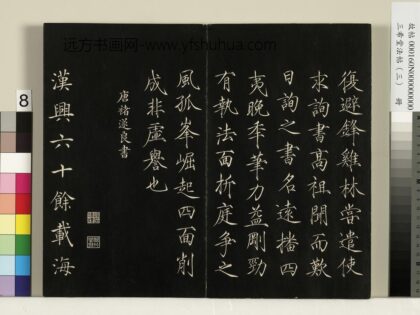 復避鋒雞林嘗遣使
求詢書高祖聞而歎
曰詢之書名遠播四
夷晚年筆力益剛勁
有執法面折庭爭之
風孤峯崛起四面削
成非虛譽也
唐褚遂良書
漢興六十餘載海
远方书画网-www.yfshuhua.com
故帖 000160N000000000
三希堂法帖(三) 冊
8